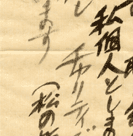 私個人としま
チャリティ
ます
(私の